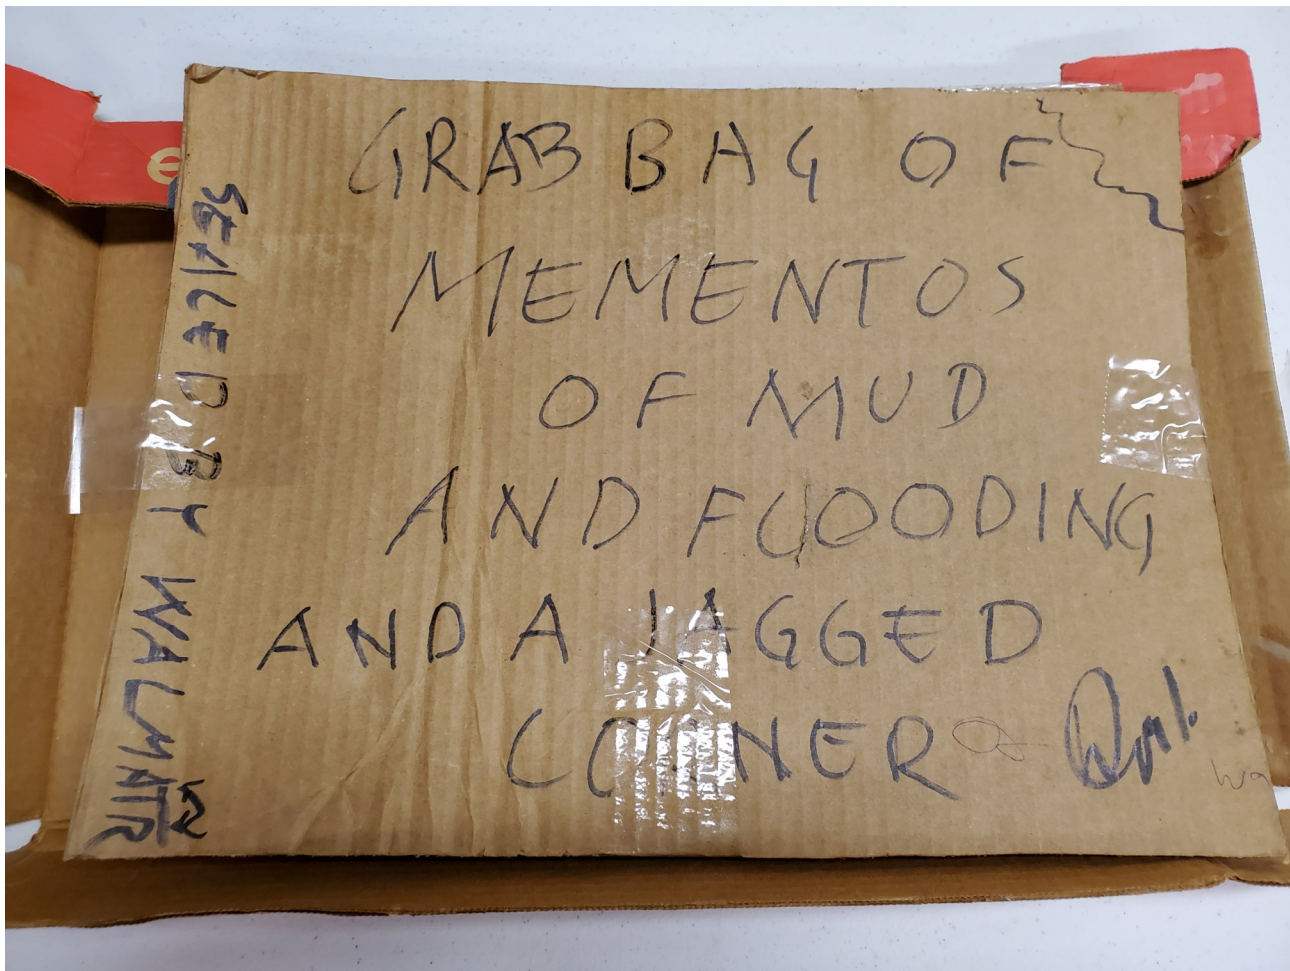 GRAB BAG OF
MEMENTOS
OF MUD
AND FLOODING
AND A JAGGED
CORNER
SEALED BY WALMATR